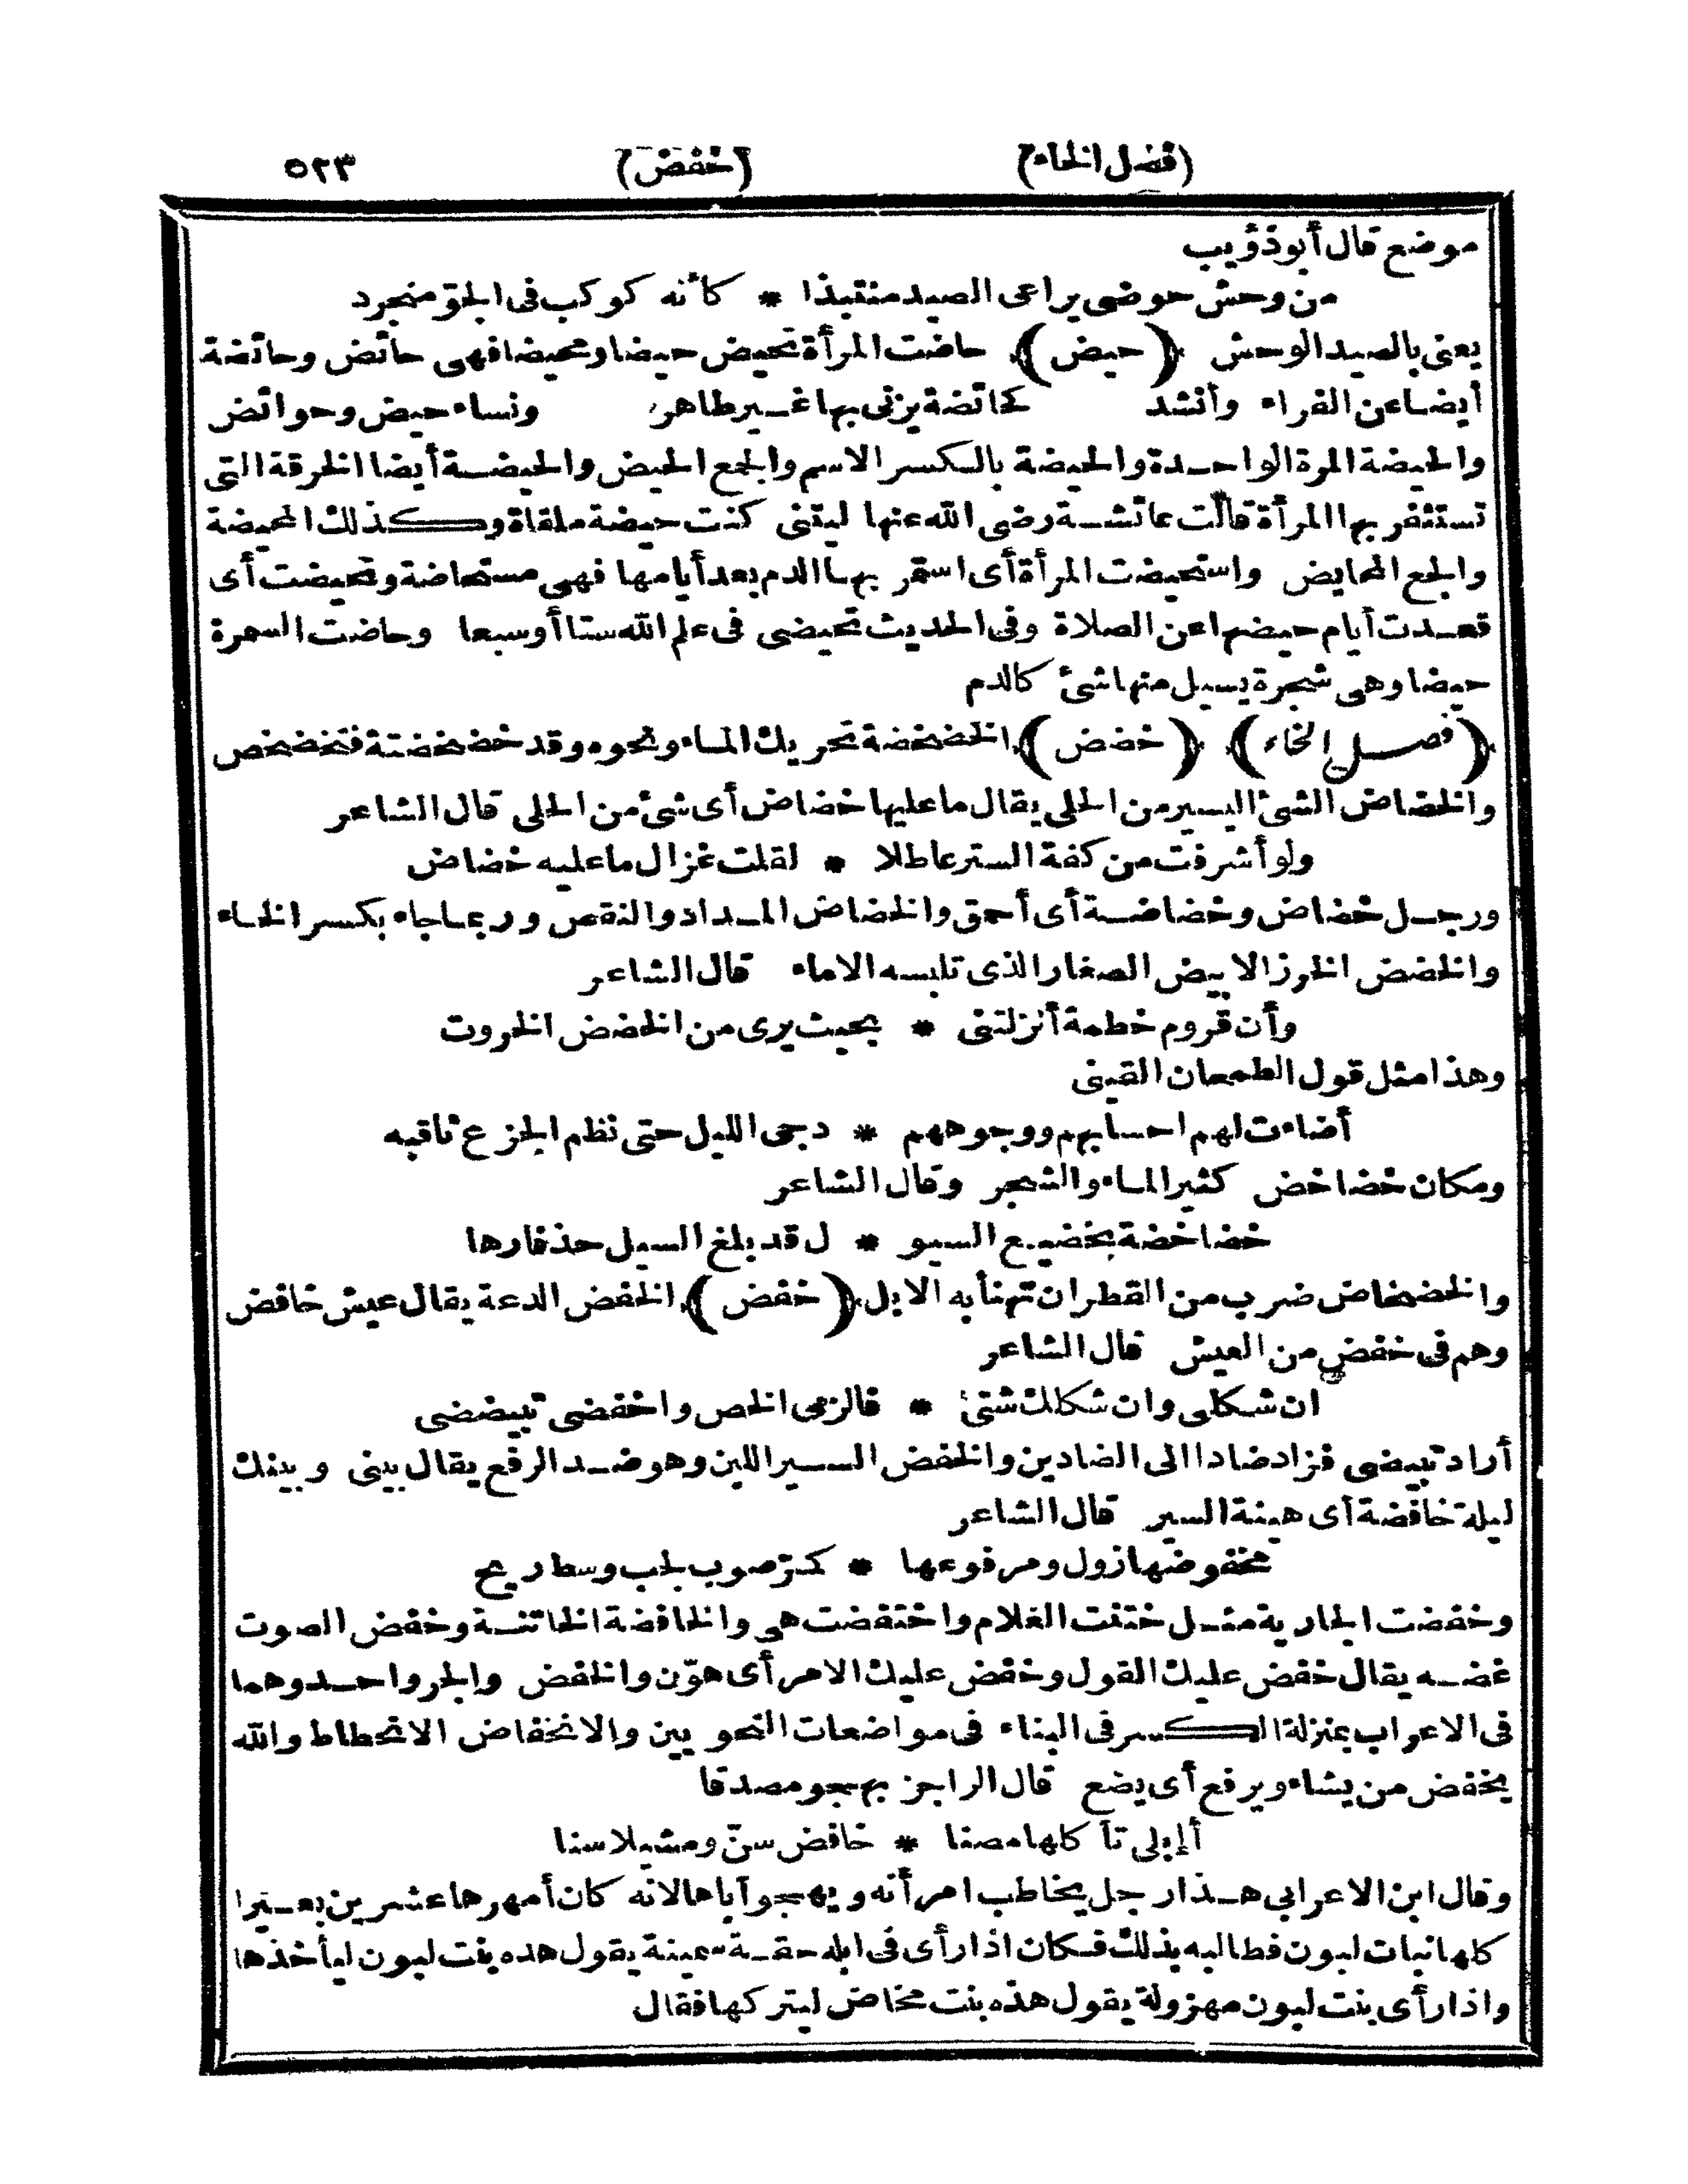 (فصل الخاء) (خفض) ٥٢٣
موضع قال أبو ذؤيب
من وحش حوضى يراعى الصيد منتبذا * كأنه كوكب فى الجوّ منجرد
يعنى بالصيد الوحش ﴿ حيض ﴾ حاضت المرأة تحيض حيضا ومحيضا فهى حائض وحائضة
أيضا عن الفراء وأنشد كحائضة يزنى بها غير طاهر ونساء حيض وحوائض
والحيضة المرة الواحدة والحيضة بالكسر الاسم والجمع الحيض والحيضة أيضا الخرقة التى
تستثفر بها المرأة قالت عائشة رضى الله عنها ليتنى كنت حيضة ملقاة وكذلك المحيضة
والجمع المحايض واستحيضت المرأة أى استمر بها الدم بعد أيامها فهى مستحاضة وتحيضت أى
قعدت أيام حيضها عن الصلاة وفى الحديث تحيضى فى علم الله ستا أو سبعا وحاضت السمرة
حيضا وهى شجرة يسيل منها شئ كالدم
﴿ فصل الخاء ﴾ ﴿ خضض ﴾ الخضخضة تحريك الماء ونحوه وقد خضخضته فتخضخض
والخضاض الشئ اليسير من الحلى يقال ما عليها خضاض أى شئ من الحلى قال الشاعر
ولو أشرفت من كفة الستر عاطلا * لقلت غزال ما عليه خضاض
ورجل خضاض وخضاضة أى أحمق والخضاض المداد والنقس وربما جاء بكسر الخاء
والخضض الخرز الابيض الصغار الذى تلبسه الاماء قال الشاعر
وأن قروم خطمة أنزلتنى * بحيث يرى من الخضض الخروت
وهذا مثل قول الطمحان القينى
أضاءت لهم احسابهم ووجوههم * دجى الليل حتى نظم الجزع ثاقبه
ومكان خضاخض كثير الماء والشجر وقال الشاعر
خضاخضة بخضيع السيو * ل قد بلغ السيل حذفارها
والخضخاض ضرب من القطران تهنأ به الابل ﴿ خفض ﴾ الخفض الدعة يقال عيش خافض
وهم فى خفض من العيش قال الشاعر
ان شكلى وان شكلك شتى * فالزمى الخص واخفضى تبيضضى
أراد تبيضى فزاد ضادا الى الضادين والخفض السير اللين وهو ضد الرفع يقال بينى وبينك
ليلة خافضة أى هينة السير قال الشاعر
مخفوضها زول ومرفوعها * كمرّ صوب لجب وسط ريح
وخفضت الجارية مثل ختنت الغلام واختفضت هى والخافضة الخاتنة وخفض الصوت
غضه يقال خفض عليك القول وخفض عليك الامر أى هوّن والخفض والجر واحد وهما
فى الاعراب بمنزلة الكسر فى البناء فى مواضعات النحويين والانخفاض الانحطاط والله
يخفض من يشاء ويرفع أى يضع قال الراجز يهجو مصدقا
أإبلى تأكلها مصنا * خافض سنّ ومشيلا سنا
وقال ابن الاعرابى هذا رجل يخاطب امرأته ويهجو أباها لانه كان أمهرها عشرين بعيرا
كلها بنات لبون فطالبه بذلك فكان اذا رأى فى ابله حقة سمينة يقول هذه بنت لبون ليأخذها
واذا رأى بنت لبون مهزولة يقول هذه بنت مخاض ليتركها فقال